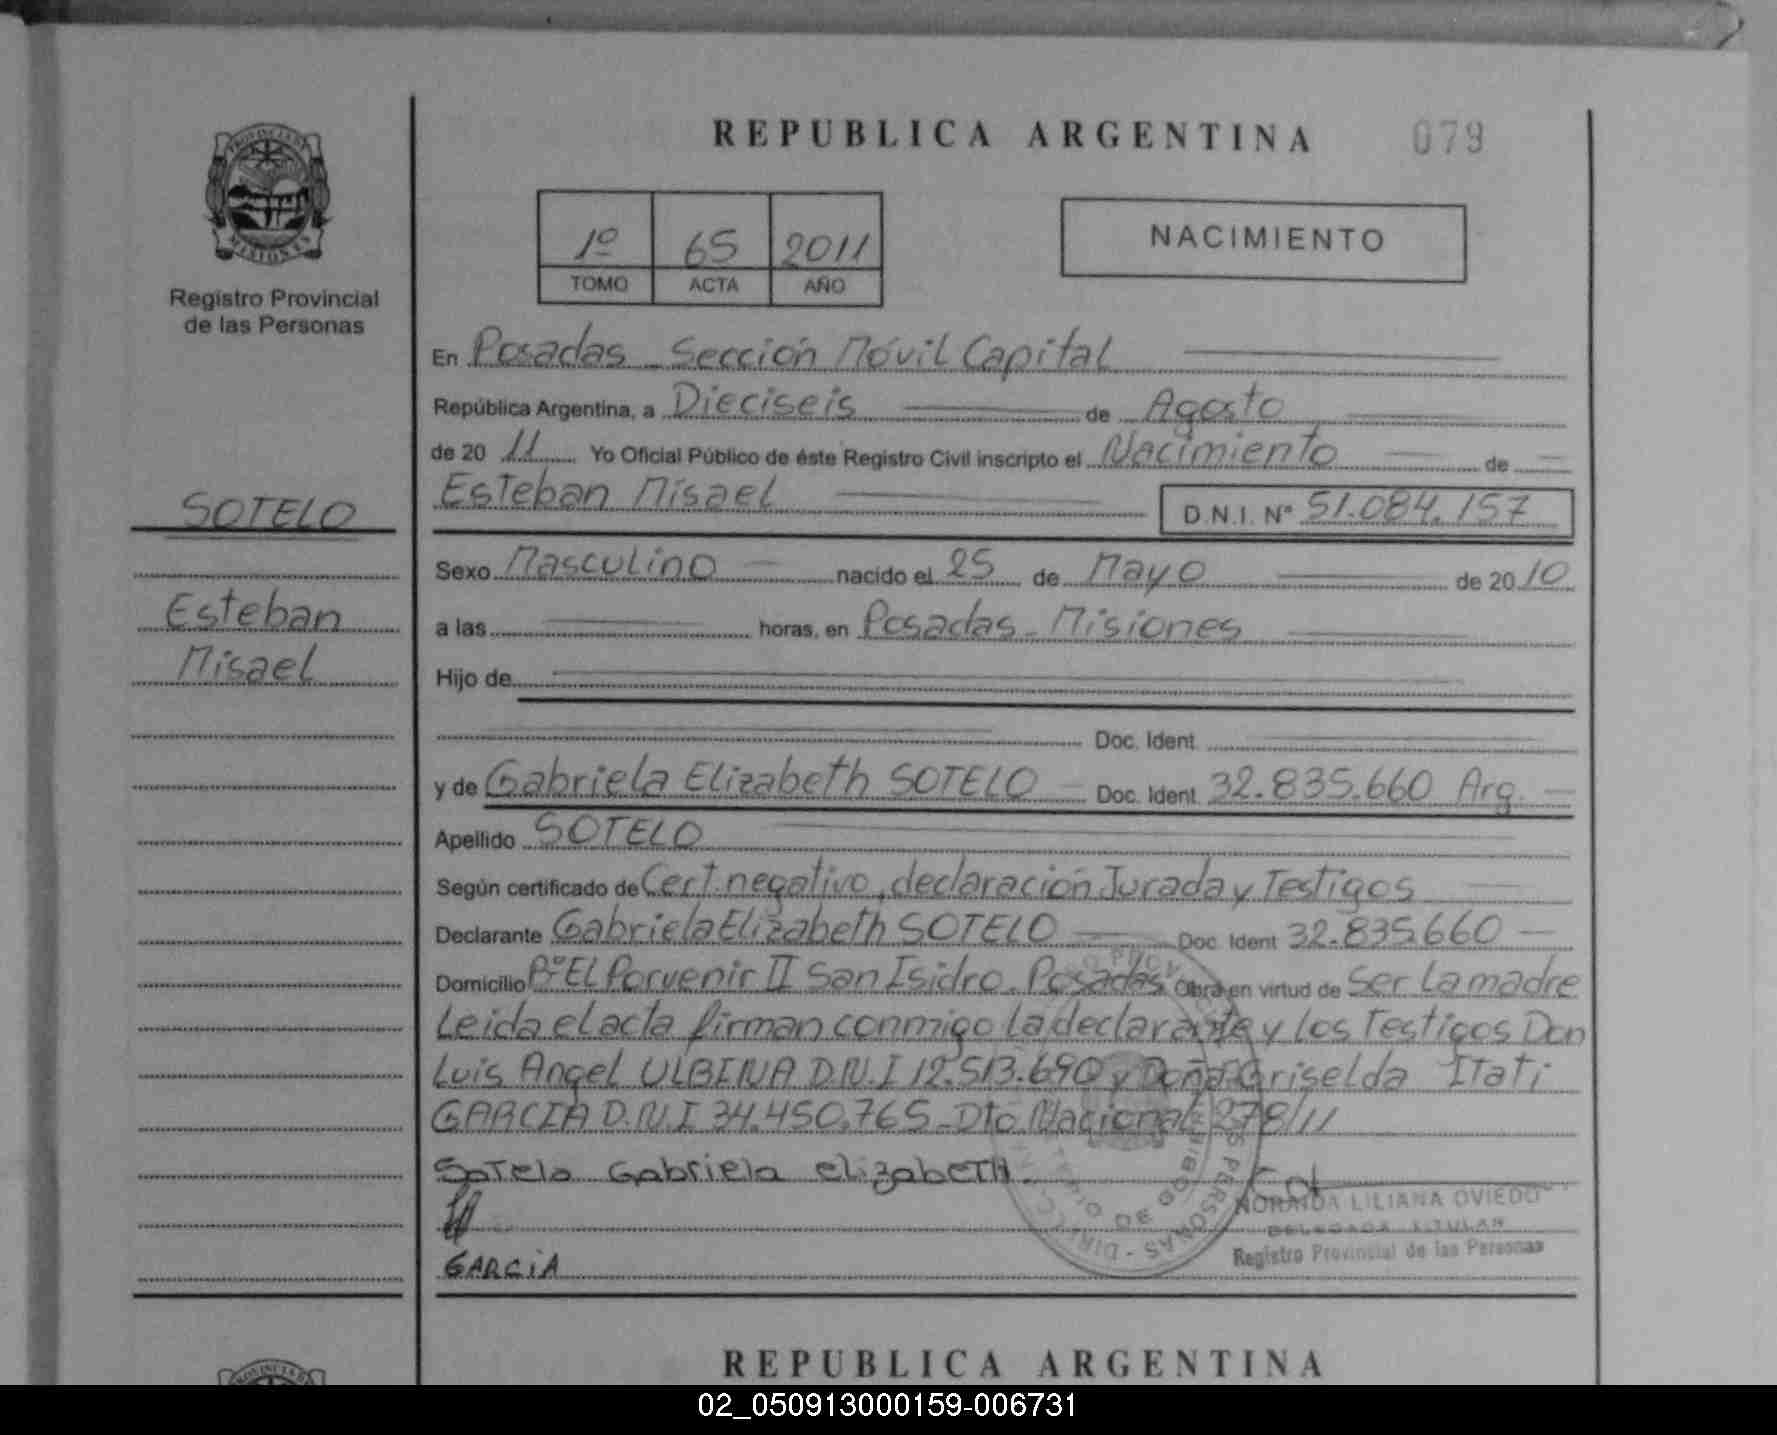 REPUBLICA ARGENTINA 079
PROVINCIA DE
MISIONES
Registro Provincial
de las Personas
1º 65 2011
TOMO ACTA AÑO
NACIMIENTO
En Posadas - Sección Móvil Capital
República Argentina, a Dieciseis de Agosto
de 20 11 Yo Oficial Público de éste Registro Civil inscripto el Nacimiento de
Esteban Misael D.N.I. Nº 51.084.157
SOTELO
Esteban
Misael
Sexo Masculino nacido el 25 de Mayo de 20 10
a las horas, en Posadas - Misiones
Hijo de
Doc. Ident.
y de Gabriela Elizabeth SOTELO Doc. Ident. 32.835.660 Arg.
Apellido SOTELO
Según certificado de Cert. negativo, declaración Jurada y Testigos
Declarante Gabriela Elizabeth SOTELO Doc. Ident 32.835.660
Domicilio Bº El Porvenir II San Isidro. Posadas Obra en virtud de Ser La madre
Leida el acta firman conmigo la declarante y los Testigos Don
Luis Angel ULBINA D.N.I 12.513.690 y Doña Griselda Itati
GARCIA D.N.I 34.450.765 - Dto Nacional 278/11
Sotelo Gabriela Elizabeth.
NORMDA LILIANA OVIEDO
DELEGADA TITULAR
Registro Provincial de las Personas
GARCIA
REPUBLICA ARGENTINA
02_050913000159-006731